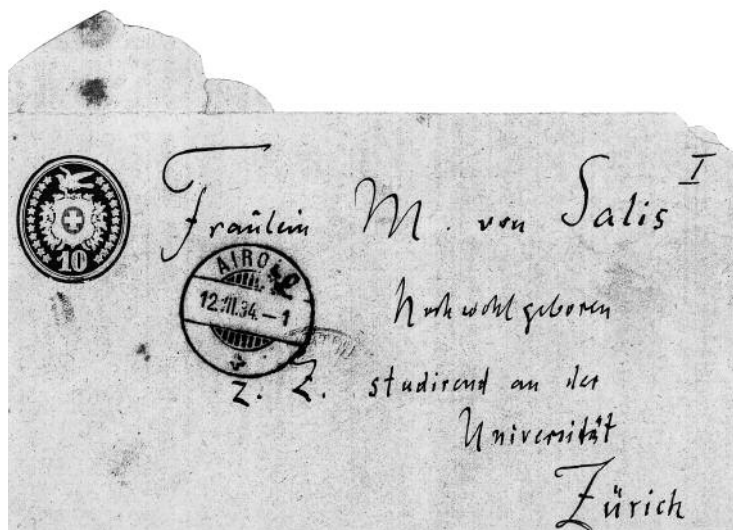 I
Fräulein M. von Salis
10
AIROLO
12.III.84.–1
Hochwohlgeboren
z. Z. studirend an der
Universität
Zürich